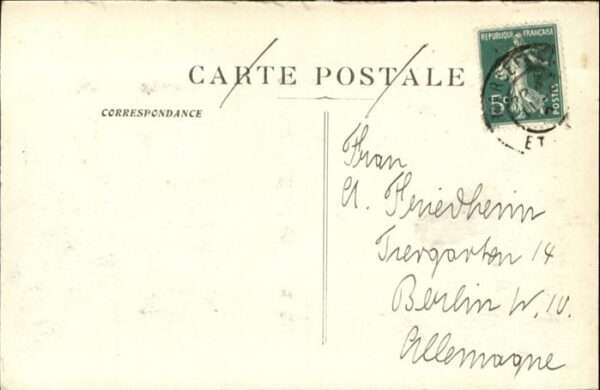 CARTE POSTALE
CORRESPONDANCE
REPUBLIQUE FRANÇAISE
5c
POSTES
ET
Frau
A. Friedheim
Tiergarten 14
Berlin W. 10.
Allemagne